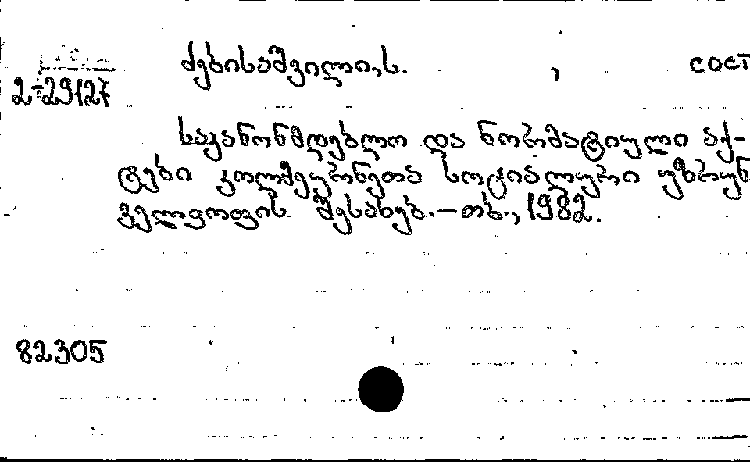 ძებისაშვილი, ს. , сост
2-29127
საკანონმდებლო და ნორმატიული აქ-
ტები კოლმეურნეთა სოციალური უზრუნ
ველყოფის შესახებ.—თბ., 1982.
82305